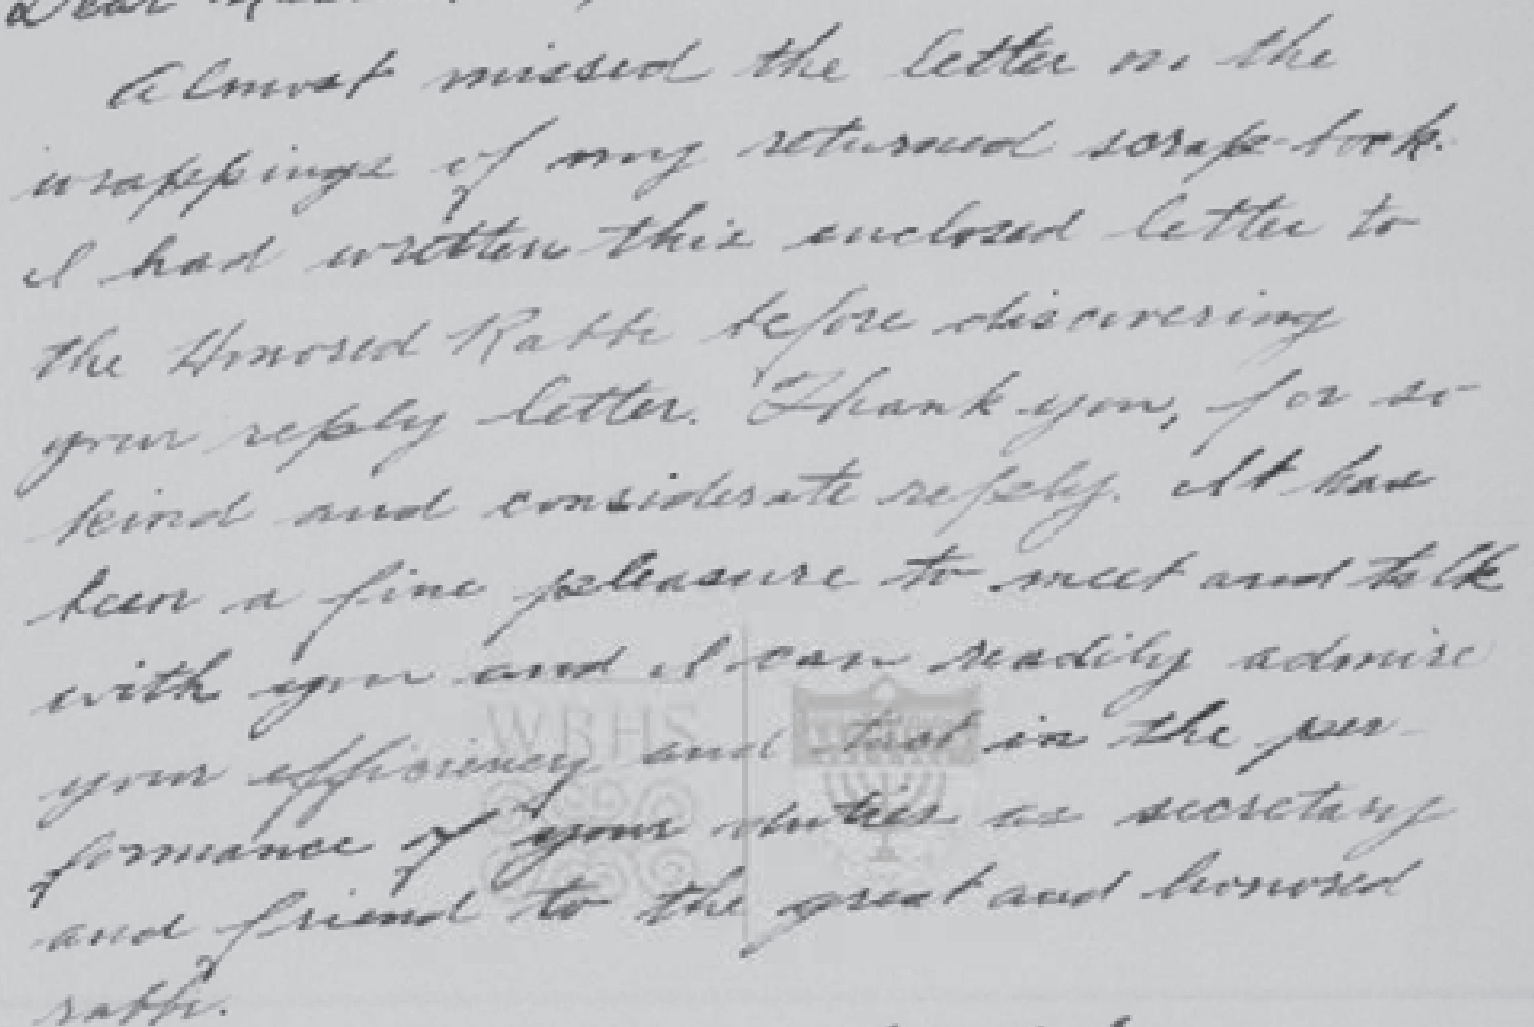 Dear
Almost missed the letter on the
wrappings of my returned scrap-book.
I had written this enclosed letter to
the Honored Rabbi before discovering
your reply letter. Thank you, for so
kind and considerate reply. It has
been a fine pleasure to meet and talk
with you and I can readily admire
your efficiency and tact in the per-
formance of your duties as secretary
and friend to the great and honored
rabbi.
WRHS